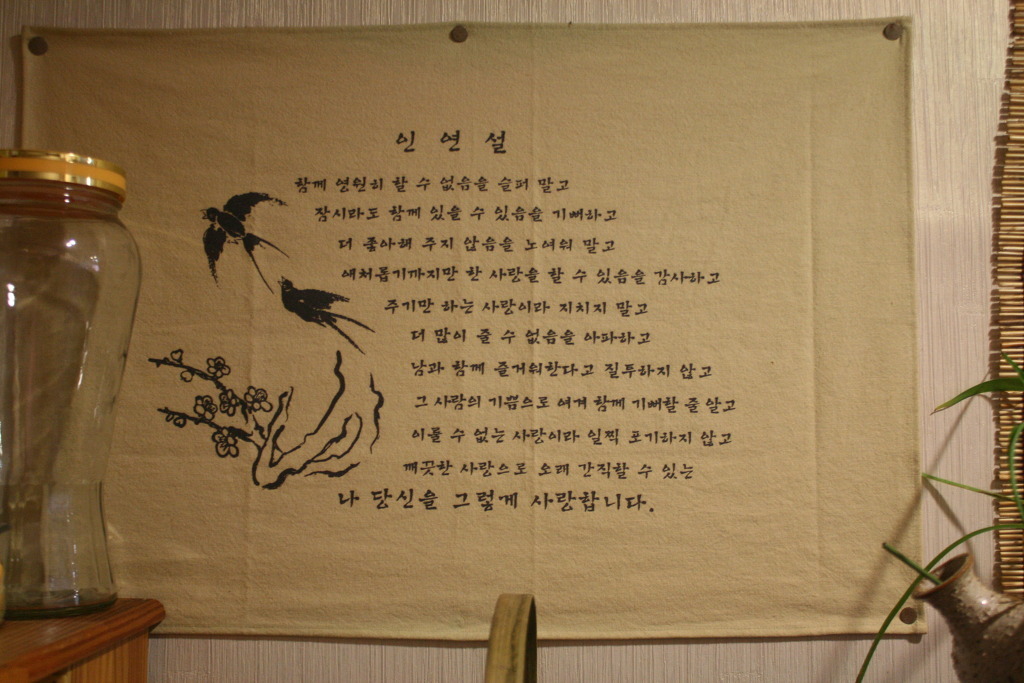 인 연 설
함께 영원히 할 수 없음을 슬퍼 말고
잠시라도 함께 있을 수 있음을 기뻐하고
더 좋아해 주지 않음을 노여워 말고
애처롭기까지만 한 사랑을 할 수 있음을 감사하고
주기만 하는 사랑이라 지치지 말고
더 많이 줄 수 없음을 아파하고
남과 함께 즐거워한다고 질투하지 않고
그 사람의 기쁨으로 여겨 함께 기뻐할 줄 알고
이룰 수 없는 사랑이라 일찍 포기하지 않고
깨끗한 사랑으로 오래 간직할 수 있는
나 당신을 그렇게 사랑합니다.